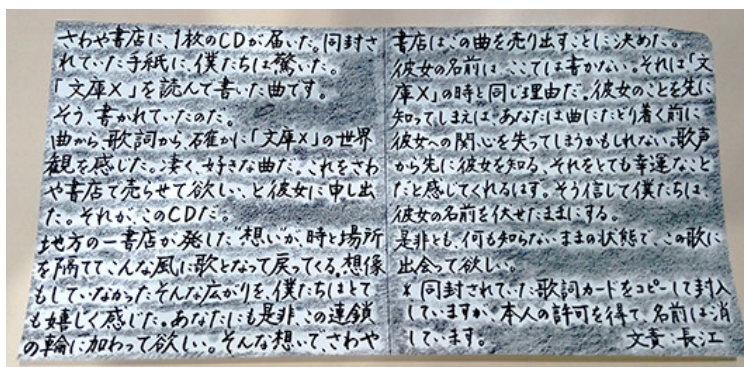 さわや書店に、1枚のCDが届いた。同封さ
れていた手紙に、僕たちは驚いた。
「文庫X」を読んで書いた曲です。
そう、書かれていたのだ。
曲から、歌詞から、確かに「文庫X」の世界
観を感じた。凄く、好きな曲だ。これをさわ
や書店で売らせて欲しい、と彼女に申し出
た。それが、このCDだ。
地方の一書店が発した“想い”が、時と場所
を隔ててこんな風に歌となって戻ってくる。想像
もしていなかったそんな広がりを、僕たちはとて
も嬉しく感じた。あなたにも是非、この連鎖
の輪に加わって欲しい。そんな想いで、さわや
書店は、この曲を売り出すことに決めた。
彼女の名前は、ここでは書かない。それは「文
庫X」の時と同じ理由だ。彼女のことを先に
知ってしまえば、あなたは曲にたどり着く前に
彼女への関心を失ってしまうかもしれない。歌声
から先に彼女を知る、それをとても幸運なこと
だと感じてくれるはず。そう信じて僕たちは、
彼女の名前を伏せたままにする。
是非とも、何も知らないままの状態で、この歌に
出会って欲しい。
*同封されていた歌詞カードをコピーして封入
していますが、本人の許可を得て、名前は消
しています。 文責・長江